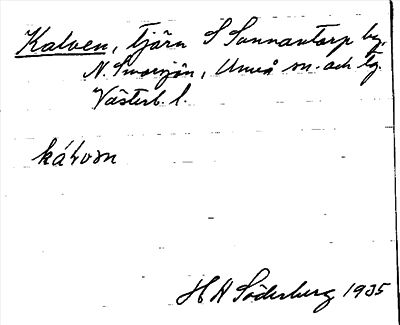 Kalven, tjärn S Sunnantorp by,
N. Innersjön, Umeå sn. och tg.
Västerb. l.
kálvαn
H A Söderberg 1935